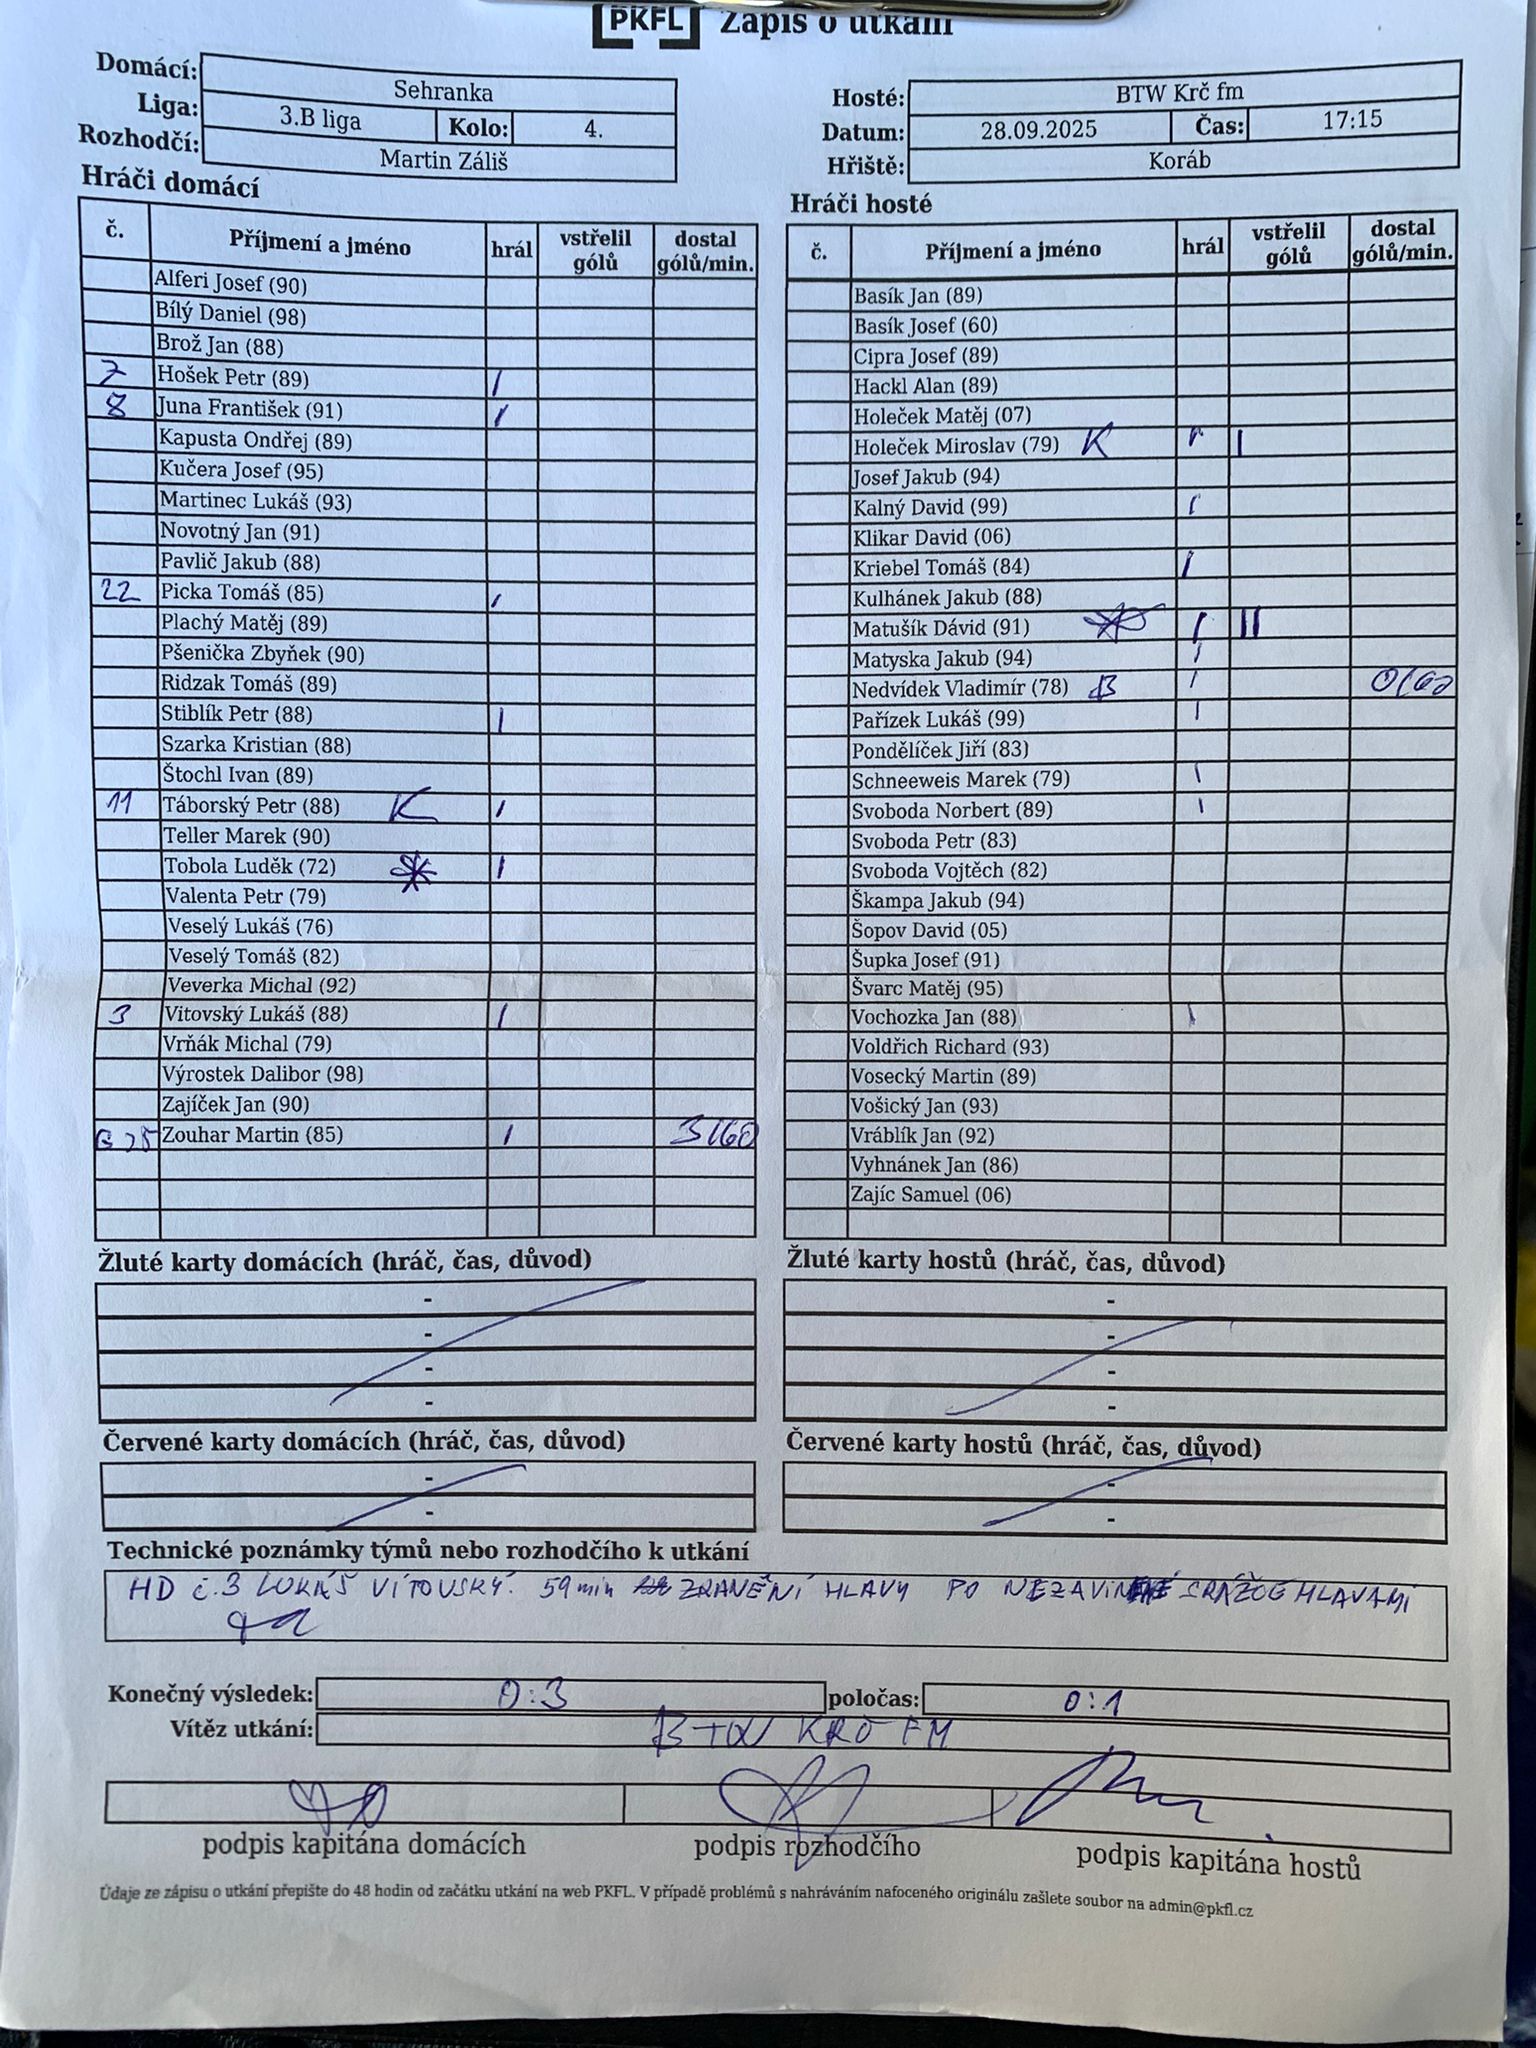 PKFL Zápis o utkání
Domácí: Sehranka
Liga: 3.B liga Kolo: 4.
Rozhodčí: Martin Záliš
Hosté: BTW Krč fm
Datum: 28.09.2025 Čas: 17:15
Hřiště: Koráb
Hráči domácí
č. Příjmení a jméno hrál vstřelil gólů dostal gólů/min.
Alferi Josef (90)
Bílý Daniel (98)
Brož Jan (88)
7 Hošek Petr (89) I
8 Juna František (91) I
Kapusta Ondřej (89)
Kučera Josef (95)
Martinec Lukáš (93)
Novotný Jan (91)
Pavlič Jakub (88)
22 Picka Tomáš (85) I
Plachý Matěj (89)
Pšenička Zbyňek (90)
Ridzak Tomáš (89)
Stiblík Petr (88) I
Szarka Kristian (88)
Štochl Ivan (89)
11 Táborský Petr (88) K I
Teller Marek (90)
Tobola Luděk (72) * I
Valenta Petr (79)
Veselý Lukáš (76)
Veselý Tomáš (82)
Veverka Michal (92)
3 Vitovský Lukáš (88) I
Vrňák Michal (79)
Výrostek Dalibor (98)
Zajíček Jan (90)
Zouhar Martin (85) I 3/60
Hráči hosté
č. Příjmení a jméno hrál vstřelil gólů dostal gólů/min.
Basík Jan (89)
Basík Josef (60)
Cipra Josef (89)
Hackl Alan (89)
Holeček Matěj (07)
Holeček Miroslav (79) K I I
Josef Jakub (94)
Kalný David (99) I
Klikar David (06)
Kriebel Tomáš (84) I
Kulhánek Jakub (88)
Matušík Dávid (91) * I II
Matyska Jakub (94) I
Nedvídek Vladimír (78) B I 0/60
Pařízek Lukáš (99) I
Pondělíček Jiří (83)
Schneeweis Marek (79) I
Svoboda Norbert (89) I
Svoboda Petr (83)
Svoboda Vojtěch (82)
Škampa Jakub (94)
Šopov David (05)
Šupka Josef (91)
Švarc Matěj (95)
Vochozka Jan (88) I
Voldřich Richard (93)
Vosecký Martin (89)
Vošický Jan (93)
Vráblík Jan (92)
Vyhnánek Jan (86)
Zajíc Samuel (06)
Žluté karty domácích (hráč, čas, důvod)
-
-
-
-
Žluté karty hostů (hráč, čas, důvod)
-
-
-
-
Červené karty domácích (hráč, čas, důvod)
-
-
Červené karty hostů (hráč, čas, důvod)
-
-
Technické poznámky týmů nebo rozhodčího k utkání
HD č.3 LUKÁŠ VÍTOVSKÝ. 59 min ZRANĚNÍ HLAVY PO SRÁŽCE HLAVAMI
Konečný výsledek: 0:3 poločas: 0:1
Vítěz utkání: BTW KRČ FM
podpis kapitána domácích podpis rozhodčího podpis kapitána hostů
Údaje ze zápisu o utkání přepište do 48 hodin od začátku utkání na web PKFL. V případě problémů s nahráváním nafoceného originálu zašlete soubor na admin@pkfl.cz